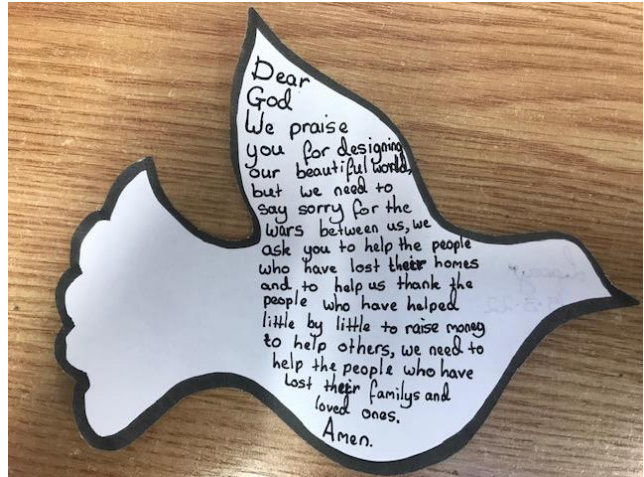 Dear
God
We praise
you for designing
our beautiful world,
but we need to
say sorry for the
wars between us, we
ask you to help the people
who have lost their homes
and to help us thank the
people who have helped
little by little to raise money
to help others, we need to
help the people who have
lost their familys and
loved ones.
Amen.